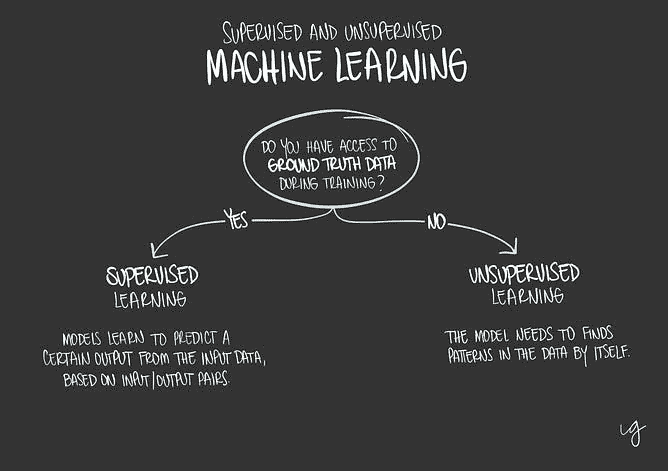 SUPERVISED AND UNSUPERVISED
MACHINE LEARNING
DO YOU HAVE ACCESS TO
GROUND TRUTH DATA
DURING TRAINING?
YES
NO
SUPERVISED
LEARNING
MODELS LEARN TO PREDICT A
CERTAIN OUTPUT FROM THE INPUT DATA,
BASED ON INPUT/OUTPUT PAIRS.
UNSUPERVISED
LEARNING
THE MODEL NEEDS TO FINDS
PATTERNS IN THE DATA BY ITSELF.